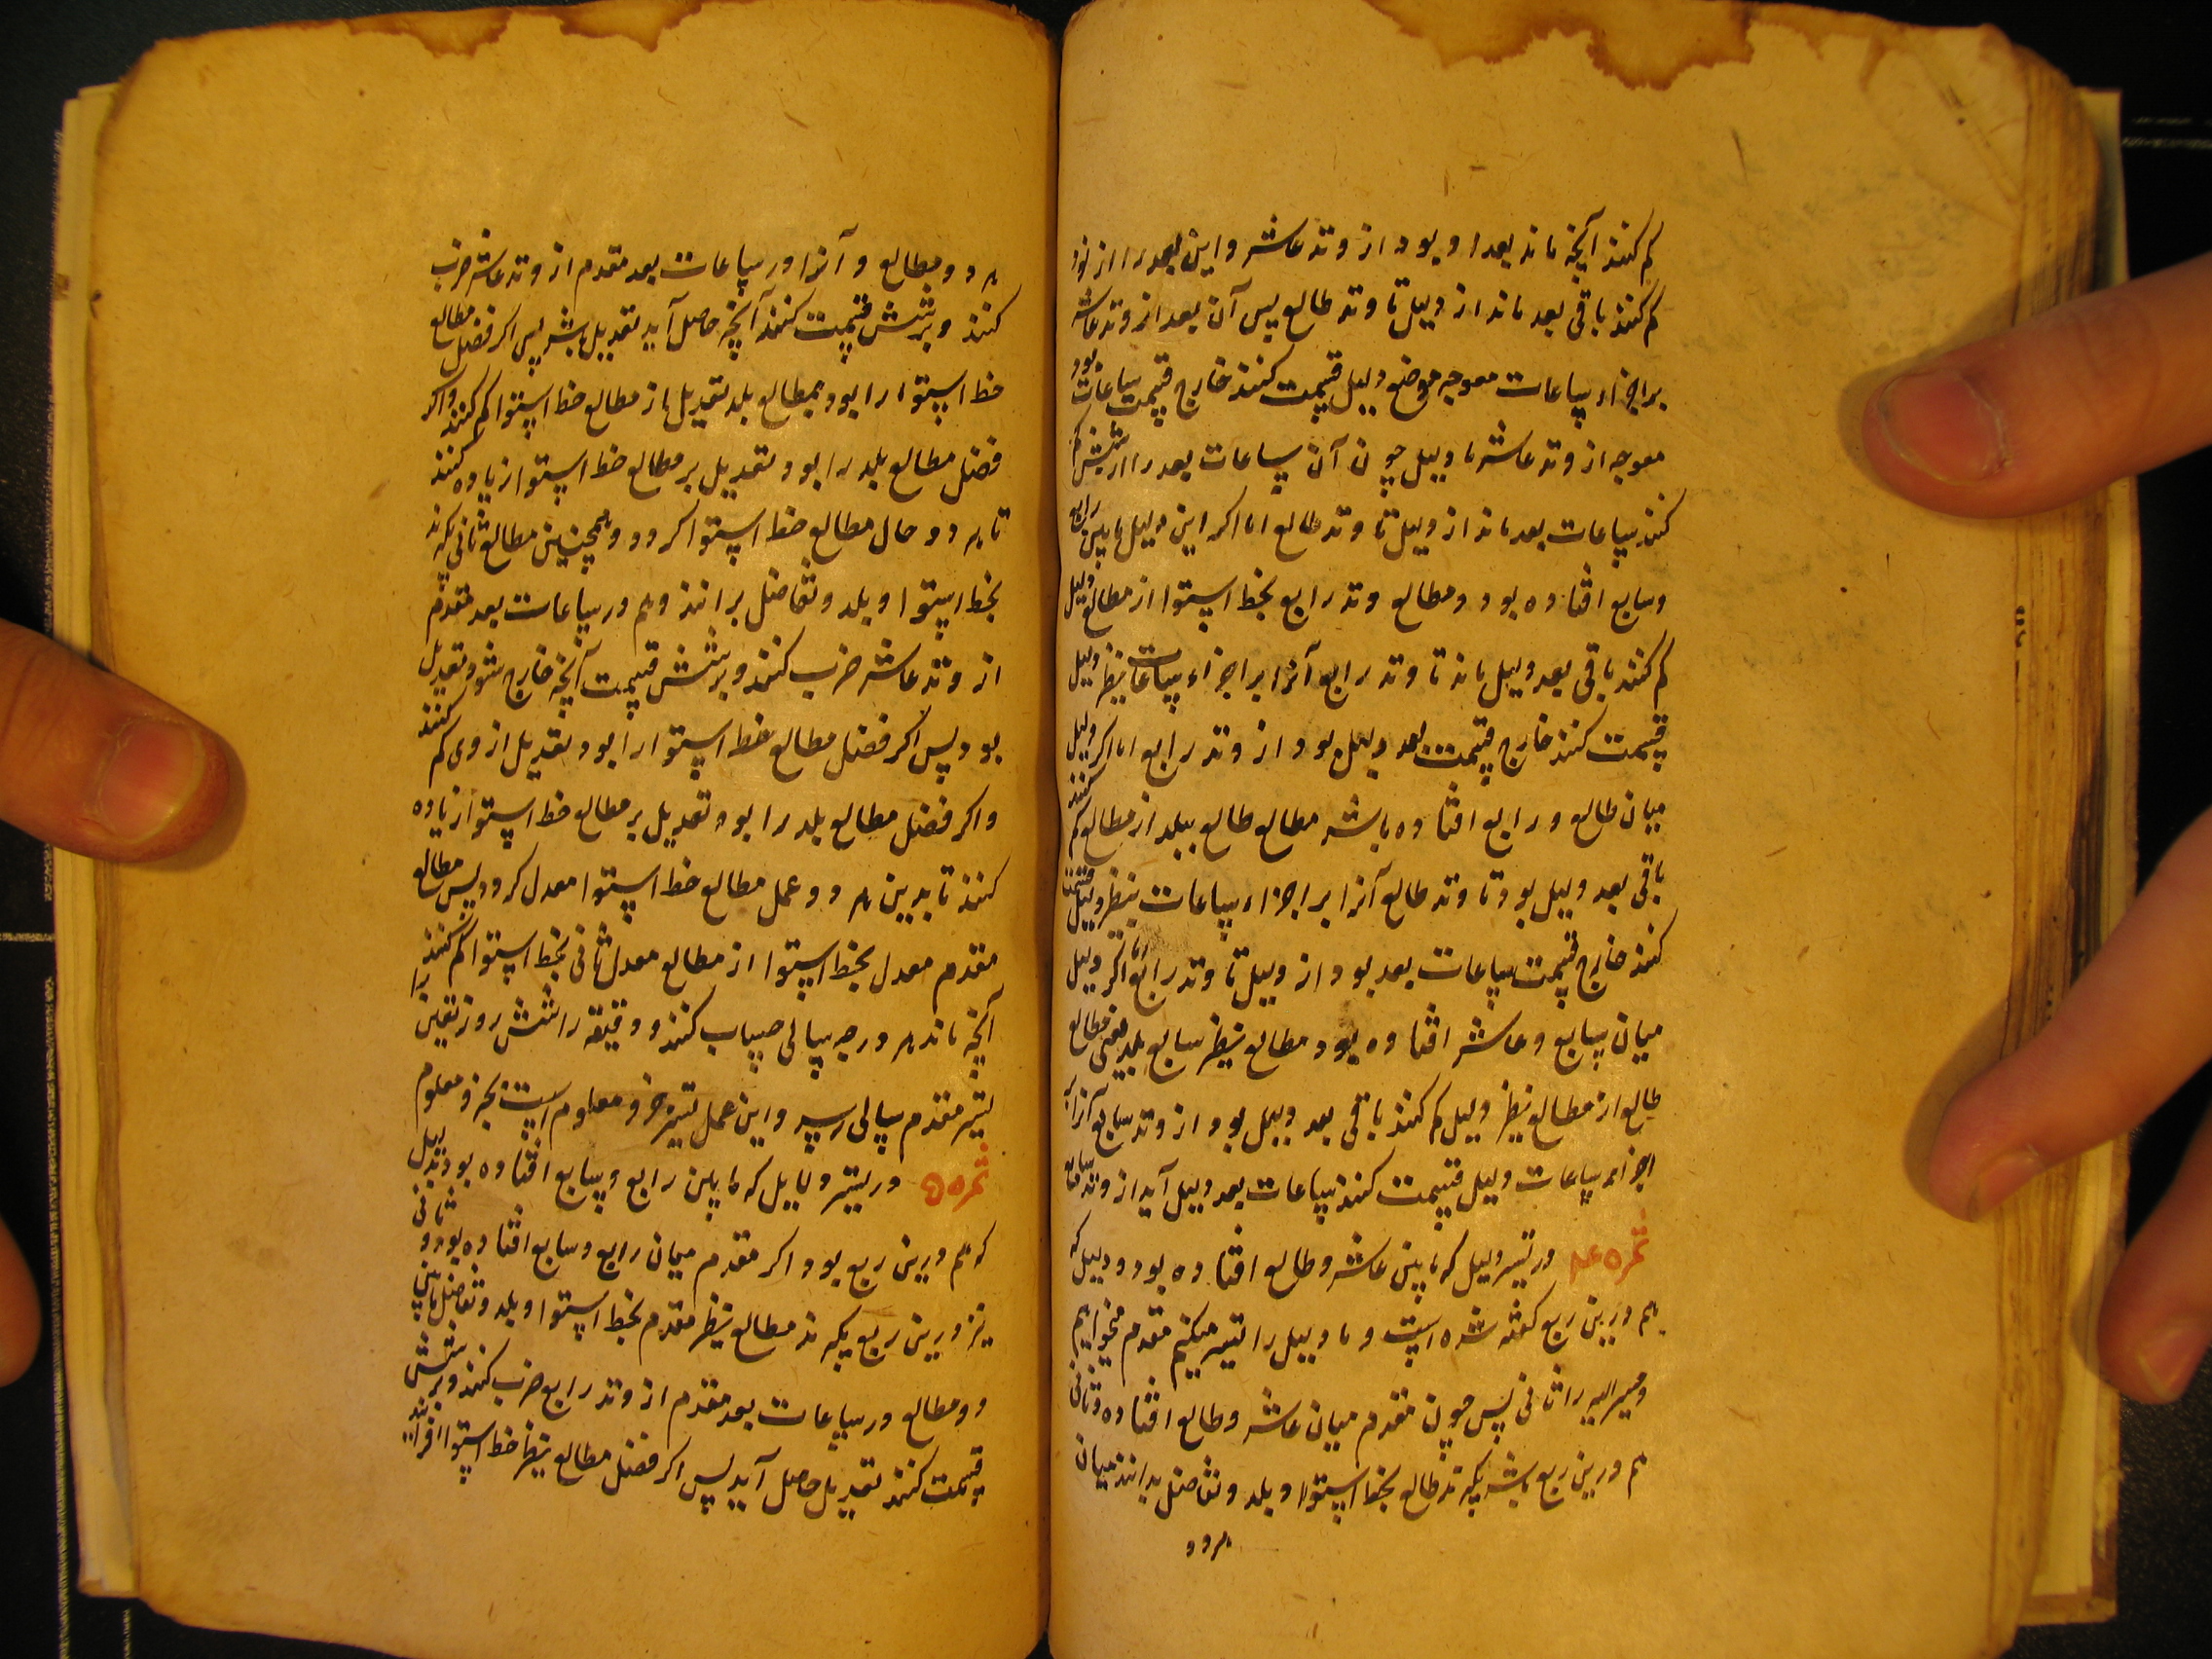 کم کنند آنچه ماند بعد او بود از وتد عاشر و این بعد را از نود
کم کنند باقی بعد ماند از دلیل تا وتد طالع پس آن بعد از وتد عاشر
بر اجزاء ساعات معوجه موضع دلیل قسمت کنند خارج قسمت ساعات بود
معوجه از وتد عاشر تا دلیل چون آن ساعات بعد را از شش کم
کنند ساعات بعد ماند از دلیل تا وتد طالع اما اکر این دلیل مابین رابع
و سابع افتاده بود و مطالع وتد رابع بخط استوا از مطالع دلیل
کم کنند باقی بعد دلیل ماند تا وتد رابع آنرا بر اجزاء ساعات نظیر دلیل
قسمت کنند خارج قسمت بعد دلیل بود از وتد رابع اما اکر دلیل
میان طالع و رابع افتاده باشد مطالع طالع ببلد از مطالع کم کنند
باقی بعد دلیل بود تا وتد طالع آنرا بر اجزاء ساعات نظیر دلیل قسمت
کنند خارج قسمت ساعات بعد بود از دلیل تا وتد رابع اکر دلیل
میان سابع و عاشر افتاده بود مطالع نظیر سابع بلد یعنی مطالع
طالع از مطالع نظیر دلیل کم کنند باقی بعد دلیل بود از وتد سابع آنرا بر
اجزاء ساعات دلیل قسمت کنند ساعات بعد دلیل آید از وتد سابع
ثمره عد در تسیر دلیل که مابین عاشر و طالع افتاده بود و دلیل که
هم درین ربع کفته شده است و ما دلیل را تسیر میکنیم مقدم میخوانیم
و مسیر الیه را ثانی پس چون مقدم میان عاشر و طالع افتاده و ثانی
هم درین ربع باشد یکیرند مطالع بخط استوا و بلد و تفاضل بدانند میان
هر دو
هر دو مطالع و آنرا در ساعات بعد مقدم از وتد عاشر ضرب
کنند و بر شش قسمت کنند آنچه حاصل آید تعدیل باشد پس اکر فضل مطالع
خط استوا را بود بمطالع بلد تعدیل از مطالع خط استوا کم کنند و اکر
فضل مطالع بلد را بود تعدیل بر مطالع خط استوا زیاده کنند
تا هر دو حال مطالع خط استوا کردد و همچنین مطالع ثانی یکیرند
بخط استوا و بلد و تفاضل بدانند و هم در ساعات بعد مقدم
از وتد عاشر ضرب کنند و بر شش قسمت آنچه خارج شود تعدیل
بود پس اکر فضل مطالع خط استوا را بود تعدیل از وی کم کنند
و اکر فضل مطالع بلد را بود تعدیل بر مطالع خط استوا زیاده
کنند تا بدین هر دو عمل مطالع خط استوا معدل کردد پس مطالع
مقدم معدل بخط استوا از مطالع معدل ثانی بخط استوا کم کنند
آنچه ماند هر درجه سالی حساب کنند و دقیقه را شش روز
تسیر مقدم سالی رسد و این عمل تسیر و معلوم است
ثمره در تسیر دلایل که مابین رابع و سابع افتاده بود دلیل
که هم درین ربع بود اکر مقدم میان رابع و سابع افتاده بود و ثانی
نیز درین ربع یکیرند مطالع نظیر مقدم بخط استوا و بلد و تفاضل مابین
دو مطالع در ساعات بعد مقدم از وتد رابع ضرب کنند و بر شش
قسمت کنند تعدیل حاصل آید پس اکر فضل مطالع نظیر خط استوا